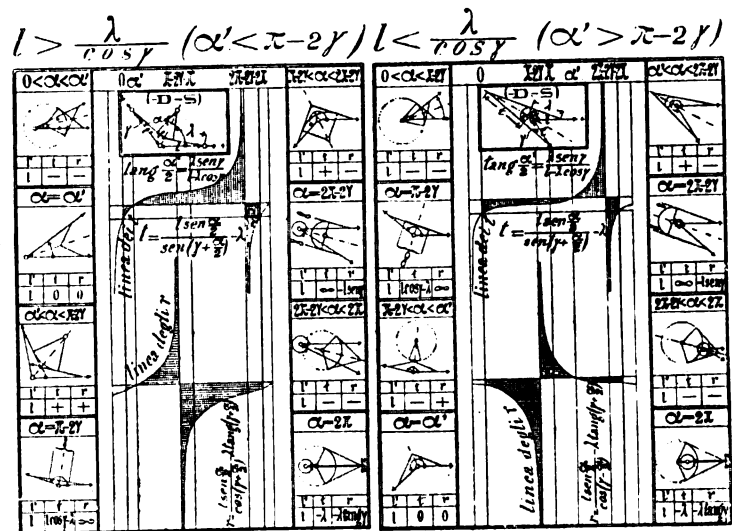 l > λ/cosγ (α'<π-2γ) l < λ/cosγ (α'>π-2γ)
0<α<α'
l' t r
l — —
α=α'
l' t r
l 0 0
α'<α<π-2γ
l' t r
l + +
α=π-2γ
l' t r
l lcosγ-λ ∞
0 α' π-2γ π 2π-2γ 2π
(-D-S)
tang α/2 = λsenγ/l-λcosγ
t = l sen α/2 / sen(γ+α/2) - λ
linea dei t
linea degli r
r = l sen α/2 / cos(γ+α/2) - λ tang(γ+α/2)
π-2γ<α<2π-2γ
l' t r
l + —
α=2π-2γ
l' t r
l ∞ -lsenγ
2π-2γ<α<2π
l' t r
l — —
α=2π
l' t r
l -λ -λtangγ
0<α<π-2γ
l' t r
l — —
α=π-2γ
l' t r
l lcosγ-λ ∞
π-2γ<α<α'
l' t r
l — +
α=α'
l' t r
l 0 0
0 π-2γ π α' 2π-2γ 2π
(-D-S)
tang α/2 = λsenγ/l-λcosγ
t = l sen α/2 / sen(γ+α/2) - λ
linea dei t
linea degli r
α'<α<2π-2γ
l' t r
l + —
α=2π-2γ
l' t r
l ∞ -lsenγ
2π-2γ<α<2π
l' t r
l — —
α=2π
l' t r
l -λ -λtangγ